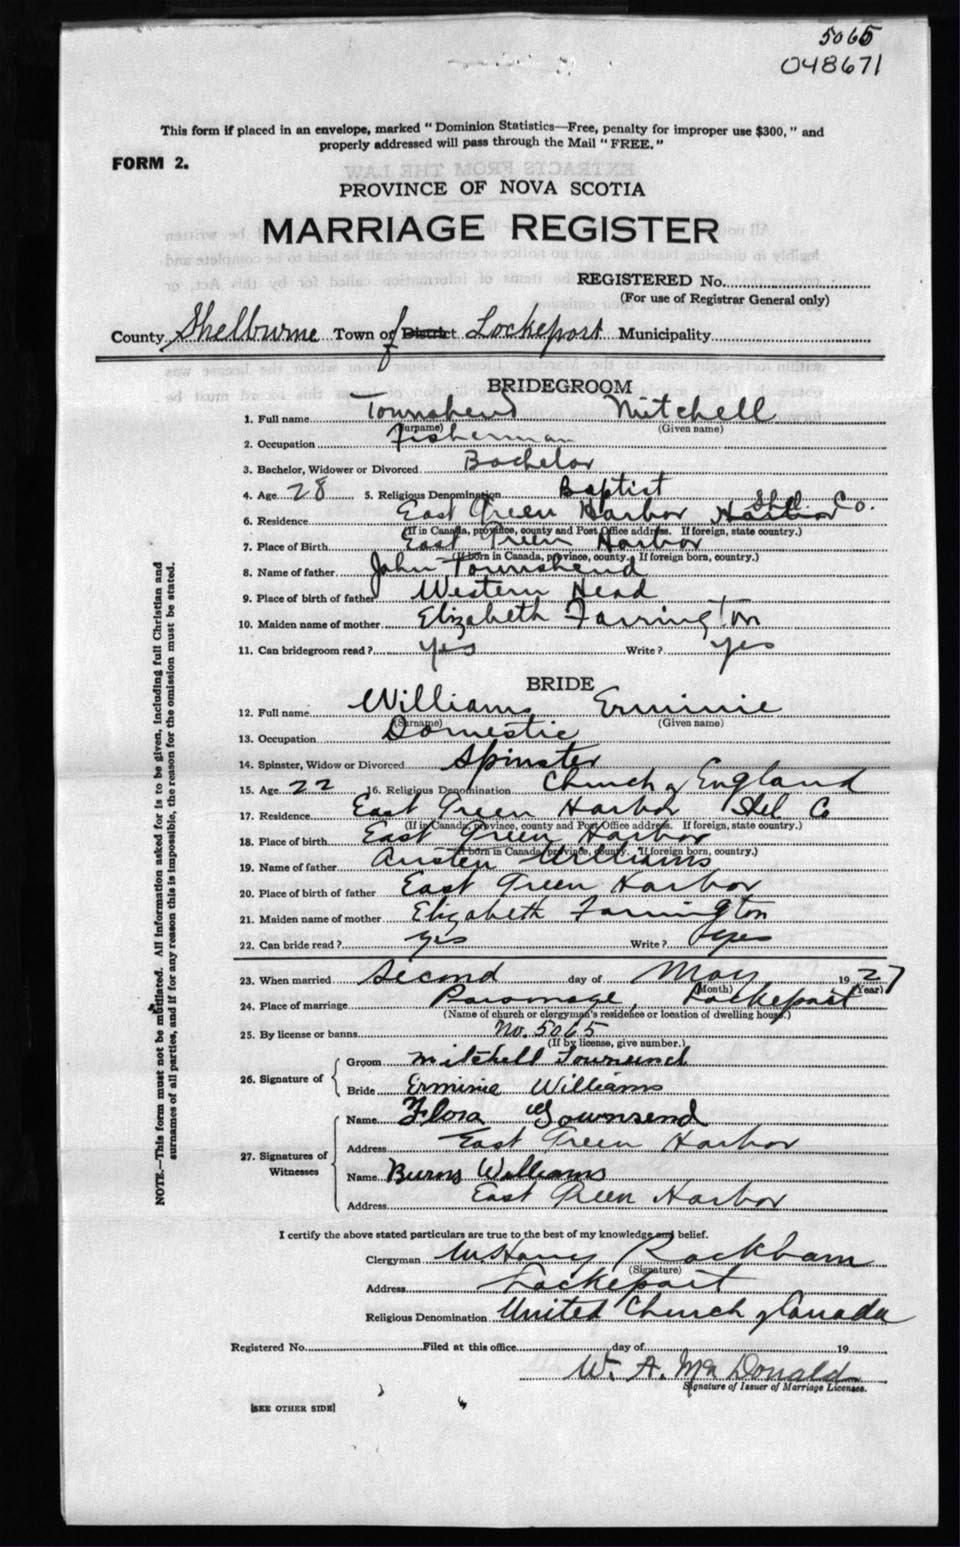 5065
048671
This form if placed in an envelope, marked "Dominion Statistics—Free, penalty for improper use $300," and
properly addressed will pass through the Mail "FREE."
FORM 2.
PROVINCE OF NOVA SCOTIA
MARRIAGE REGISTER
REGISTERED No.
(For use of Registrar General only)
County Shelburne Town of District Lockeport Municipality
BRIDEGROOM
1. Full name Townshend Mitchell
(Surname) (Given name)
2. Occupation Fisherman
3. Bachelor, Widower or Divorced Bachelor
4. Age 28 5. Religious Denomination Baptist
6. Residence East Green Harbor Shel. Co.
(If in Canada, province, county and Post Office address. If foreign, state country.)
7. Place of Birth East Green Harbor
(If born in Canada, province, county. If foreign born, country.)
8. Name of father John Townshend
9. Place of birth of father Western Head
10. Maiden name of mother Elizabeth Farrington
11. Can bridegroom read? yes Write? yes
BRIDE
12. Full name Williams Erminie
(Surname) (Given name)
13. Occupation Domestic
14. Spinster, Widow or Divorced Spinster
15. Age 22 16. Religious Denomination Church of England
17. Residence East Green Harbor Shel Co
(If in Canada, province, county and Post Office address. If foreign, state country.)
18. Place of birth East Green Harbor
(If born in Canada, province, county. If foreign born, country.)
19. Name of father Austen Williams
20. Place of birth of father East Green Harbor
21. Maiden name of mother Elizabeth Farrington
22. Can bride read? yes Write? yes
23. When married second day of May 1927
(Month) (Year)
24. Place of marriage Parsonage, Lockeport
(Name of church or clergyman's residence or location of dwelling house.)
25. By license or banns No. 5065
(If by license, give number.)
26. Signature of Groom Mitchell Townsend
Bride Erminie Williams
27. Signatures of Witnesses
Name Flora Townsend
Address East Green Harbor
Name Burns Williams
Address East Green Harbor
I certify the above stated particulars are true to the best of my knowledge and belief.
Clergyman Rackham
(Signature)
Address Lockeport
Religious Denomination United Church of Canada
Registered No. Filed at this office day of 19
W. A. McDonald
Signature of Issuer of Marriage Licenses.
[SEE OTHER SIDE]
NOTE.—This form must not be mutilated. All information asked for is to be given, including full Christian and
surnames of all parties, and if for any reason this is impossible, the reason for the omission must be stated.